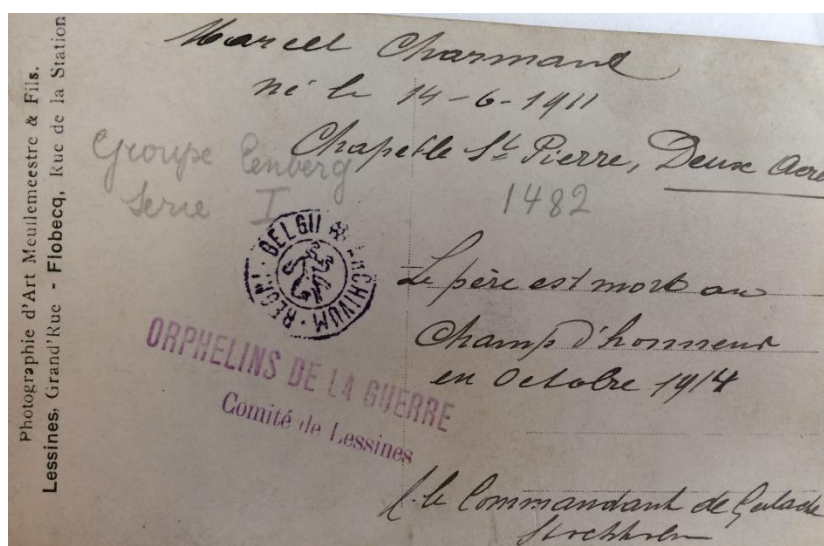 Photographie d'Art Meullemeestre & Fils.
Lessines, Grand'Rue - Flobecq, Rue de la Station
Marcel Charmant
né le 14-6-1911
Chapelle St Pierre, Deux Acre
Groupe
Serie I
1482
REGNI · BELGII ARCHIVUM
Le père est mort au
Champ d'honneur
en Octobre 1914
ORPHELINS DE LA GUERRE
Comité de Lessines
le Commandant de
Stockholm